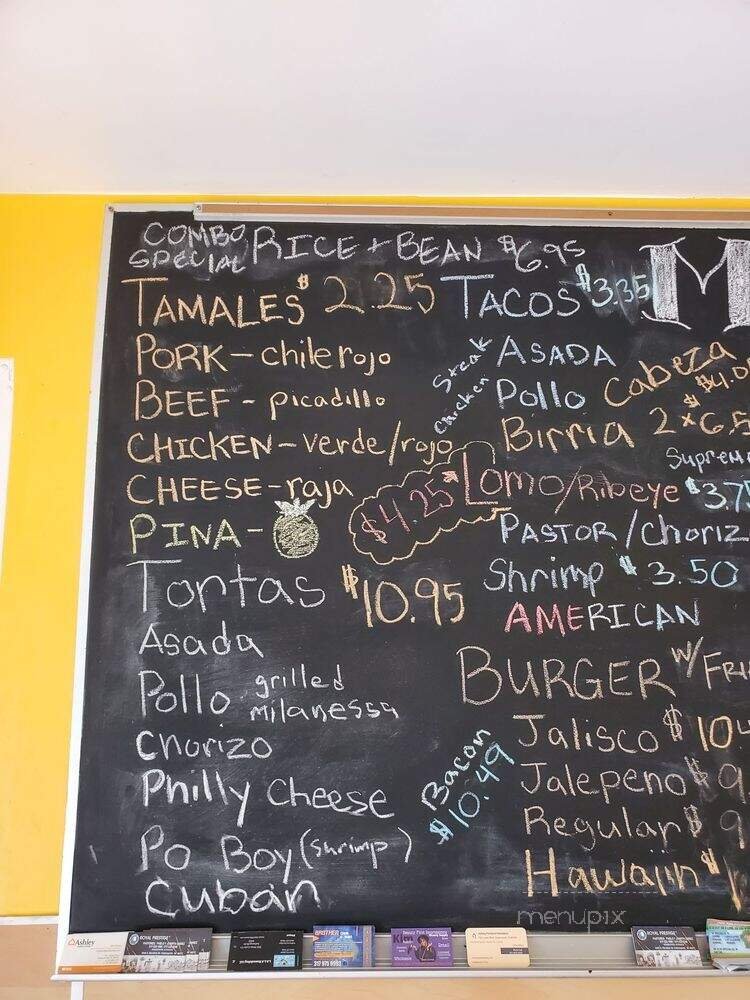 COMBO SPECIAL RICE + BEAN $6.95
TAMALES $2.25
PORK - chile rojo
BEEF - picadillo
CHICKEN - verde/rojo
CHEESE - raja
PINA -
Tortas $10.95
Asada
Pollo grilled
milanessa
Chorizo
Philly Cheese
Po Boy (shrimp)
Cuban
TACOS $3.35
Steak ASADA
Chicken Pollo
Cabeza
$4.0
Birria 2 x 6.5
Suprem
$4.25 Lomo/Ribeye $3.75
PASTOR/Choriz
Shrimp $3.50
AMERICAN
BURGER W/ FRI
Jalisco $10.4
Jalepeno $9
Regular $9
Hawaiin $1
Bacon
$10.49
M
Ashley
ROYAL PRESTIGE
BROTHER
317 975 9993
Kien
ROYAL PRESTIGE
menupix